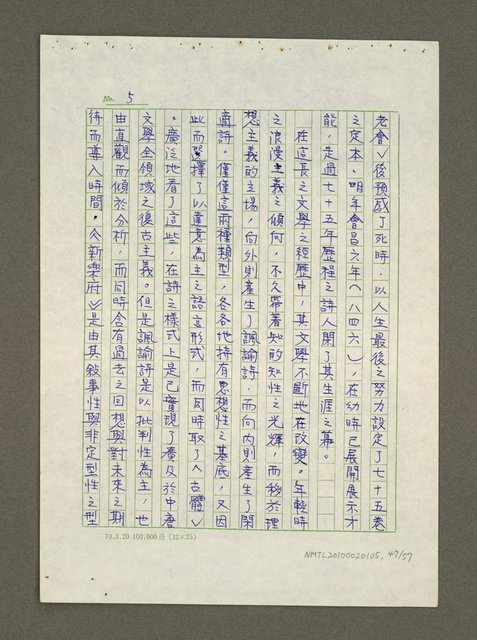 No. 5
老會﹀後預感了死時，以人生最後之努力設定了七十五卷
之定本、明年會昌六年︿八四六﹀，在幼時已展開展示才
能，走過七十五年歷程之詩人閉了其生涯之幕。
在這長之文學之經歷中，其文學不斷地在改變。年輕時
之浪漫主義之傾向，不久帶著知的知性之光輝，而移於理
想主義的立場，向外則產生了諷諭詩，而向內則產生了閑
適詩。僅僅這兩種類型，各各地持有思想性之基底，又因
此而選擇了以達意為主之語言形式，而同時取了︿古體﹀
。廣泛地看了這些，在詩之樣式上是已實現了廣及於中唐
文學全領域之復古主義。但是諷諭詩是以批判性為主，也
由直觀而傾於分析，而同時含有過去之回想與對未來之期
待而導入時間。︿新樂府﹀是由其敘事性與非定型性之型
70.3.20 100,000份 (12×25)
NMTL20100020105, 47/57